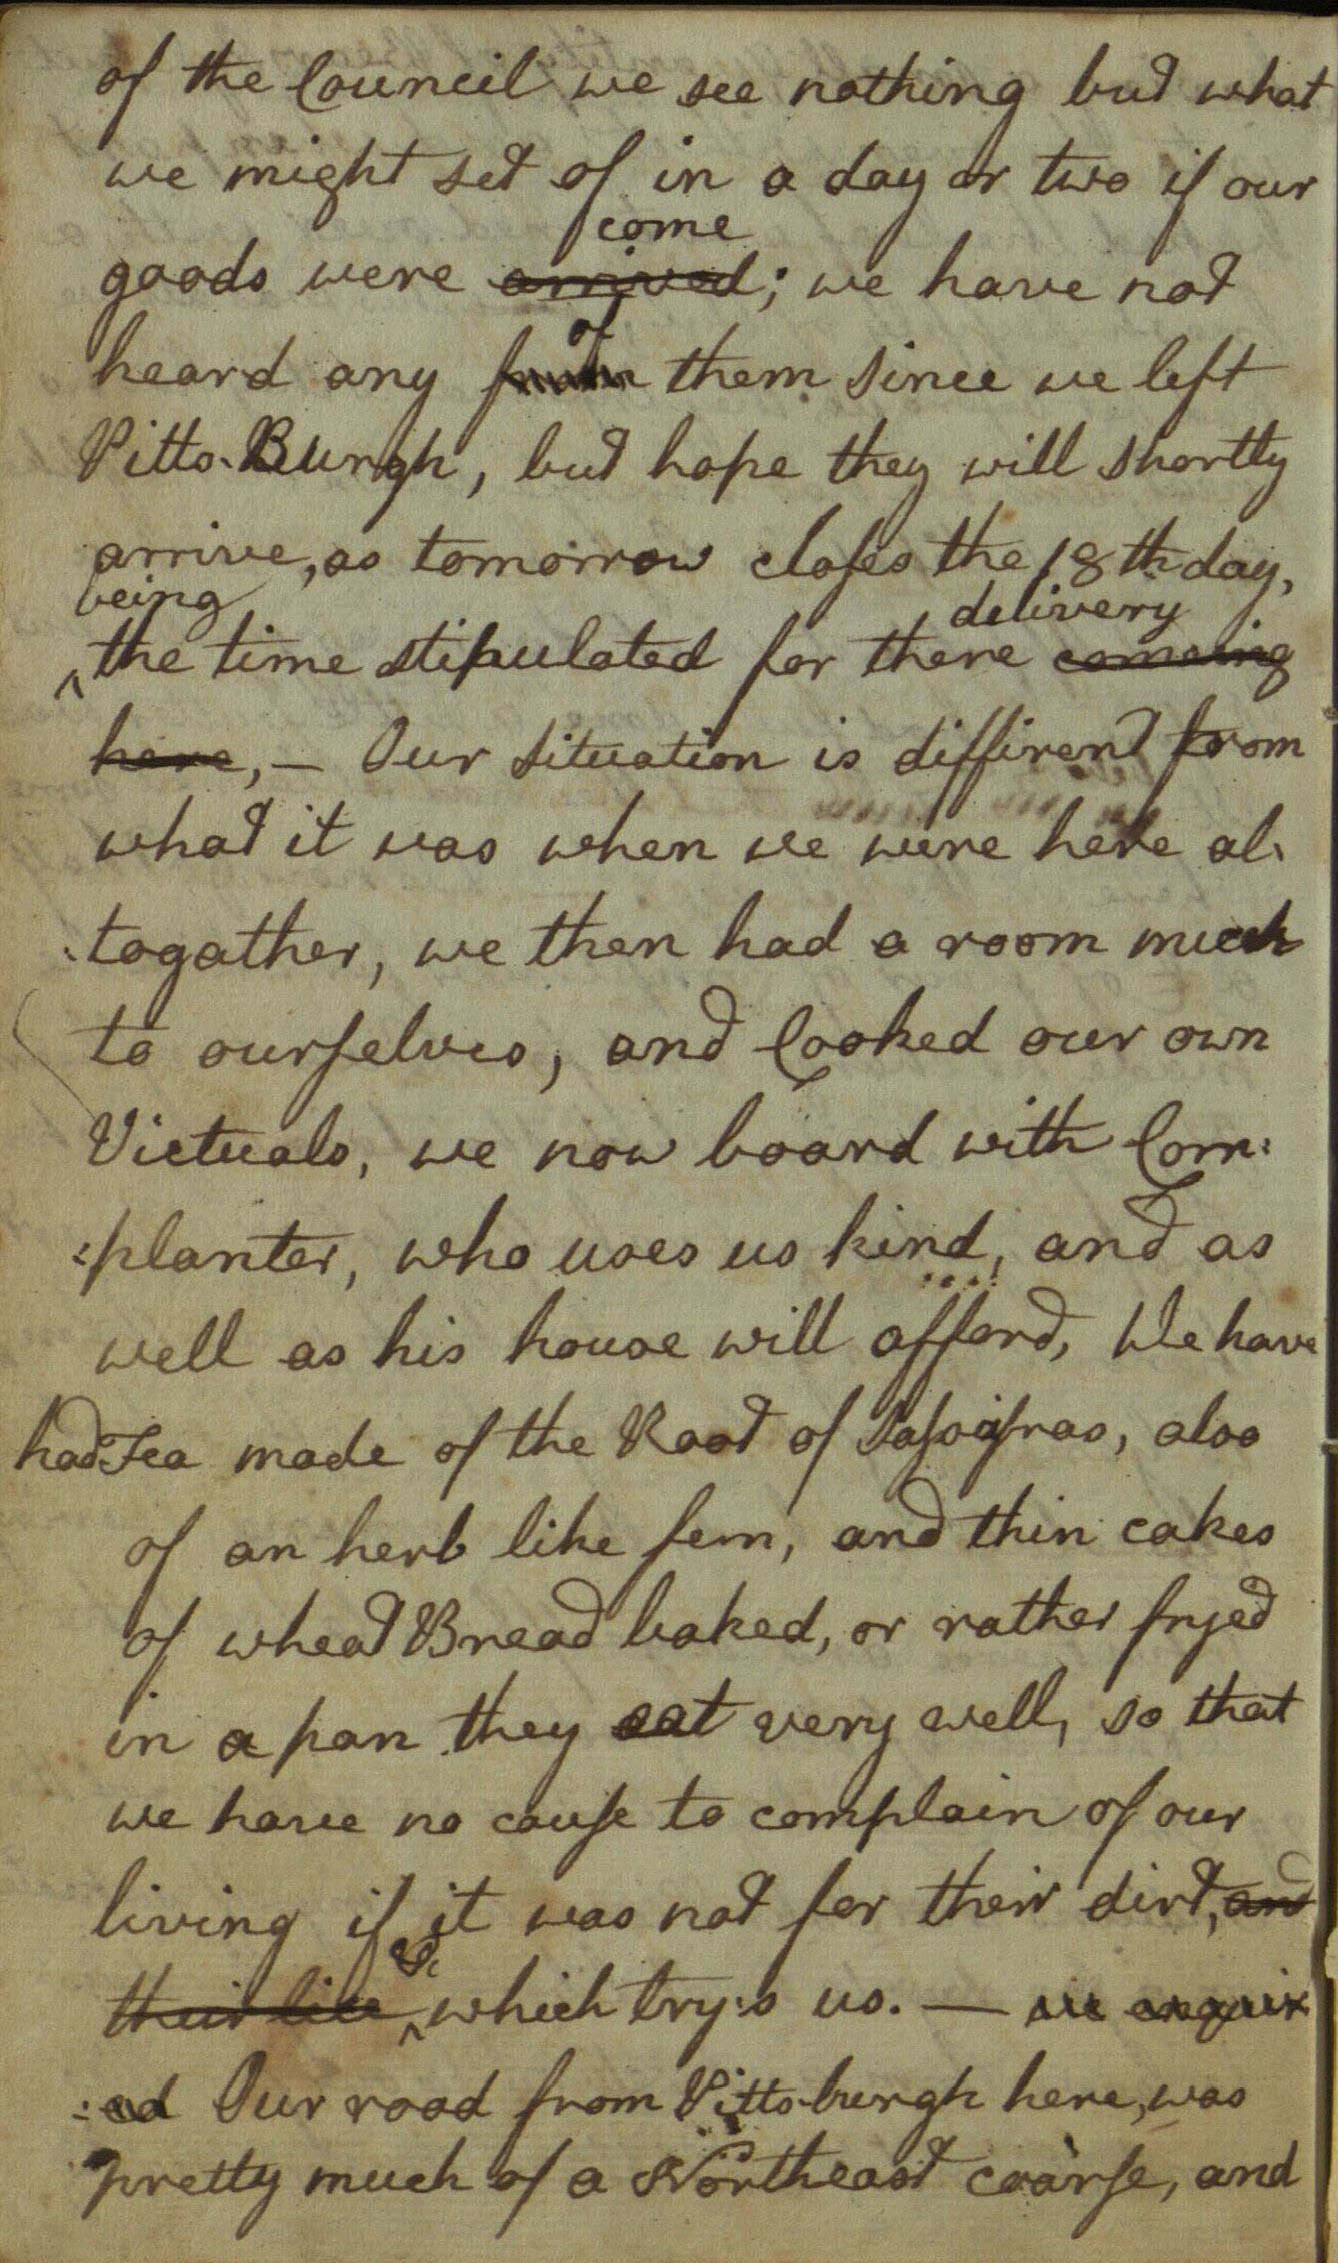 of the Council we see nothing but what
we might set of in a day or two if our
come
goods were arrived; we have not
of
heard any from them since we left
Pitts-Burgh, but hope they will shortly
arrive, as tomorrow closes the 18th day,
being delivery
^ the time stipulated for there comeing
here, — Our situation is diffirent from
what it was when we were here al-
togather, we then had a room much
to ourselves, and Cooked our own
Victuals, we now board with Corn:
:planter, who uses us kind, and as
well as his house will afford, We have
had Tea made of the Root of Sasoifras, also
of an herb like fern, and thin cakes
of wheat Bread baked, or rather fryed
in a pan they eat very well, so that
we have no cause to complain of our
living if it was not for their dirt, and
&c
their lice ^ which trys us. — we enquir
:ed Our road from Pittsburgh here, was
pretty much of a Northeast coarse, and